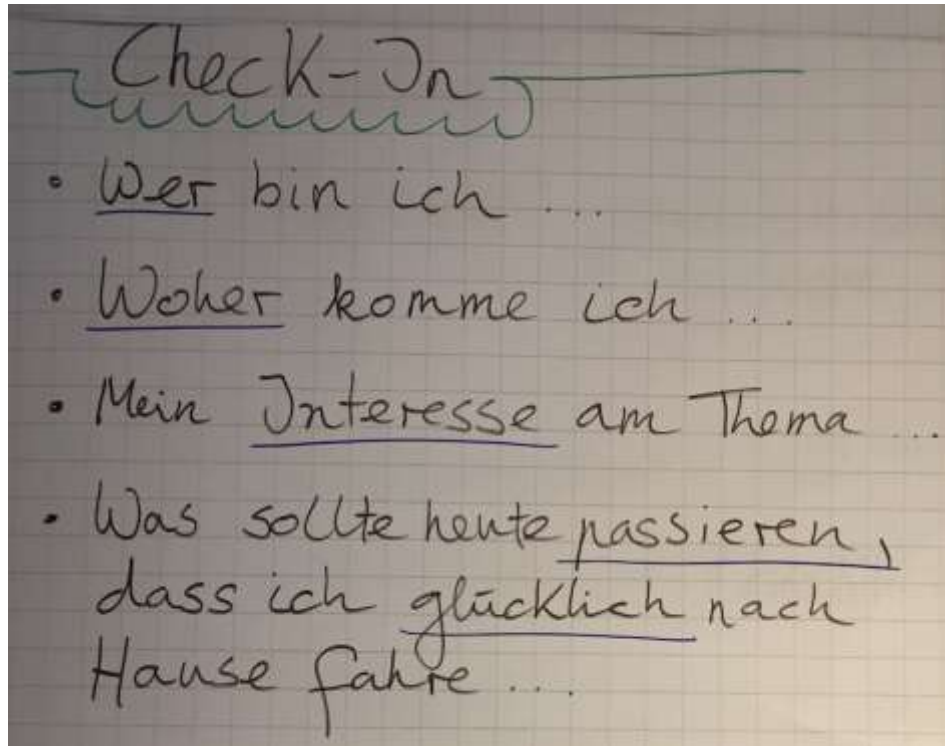 Check-In
• Wer bin ich ...
• Woher komme ich ...
• Mein Interesse am Thema ...
• Was sollte heute passieren,
dass ich glücklich nach
Hause fahre ...